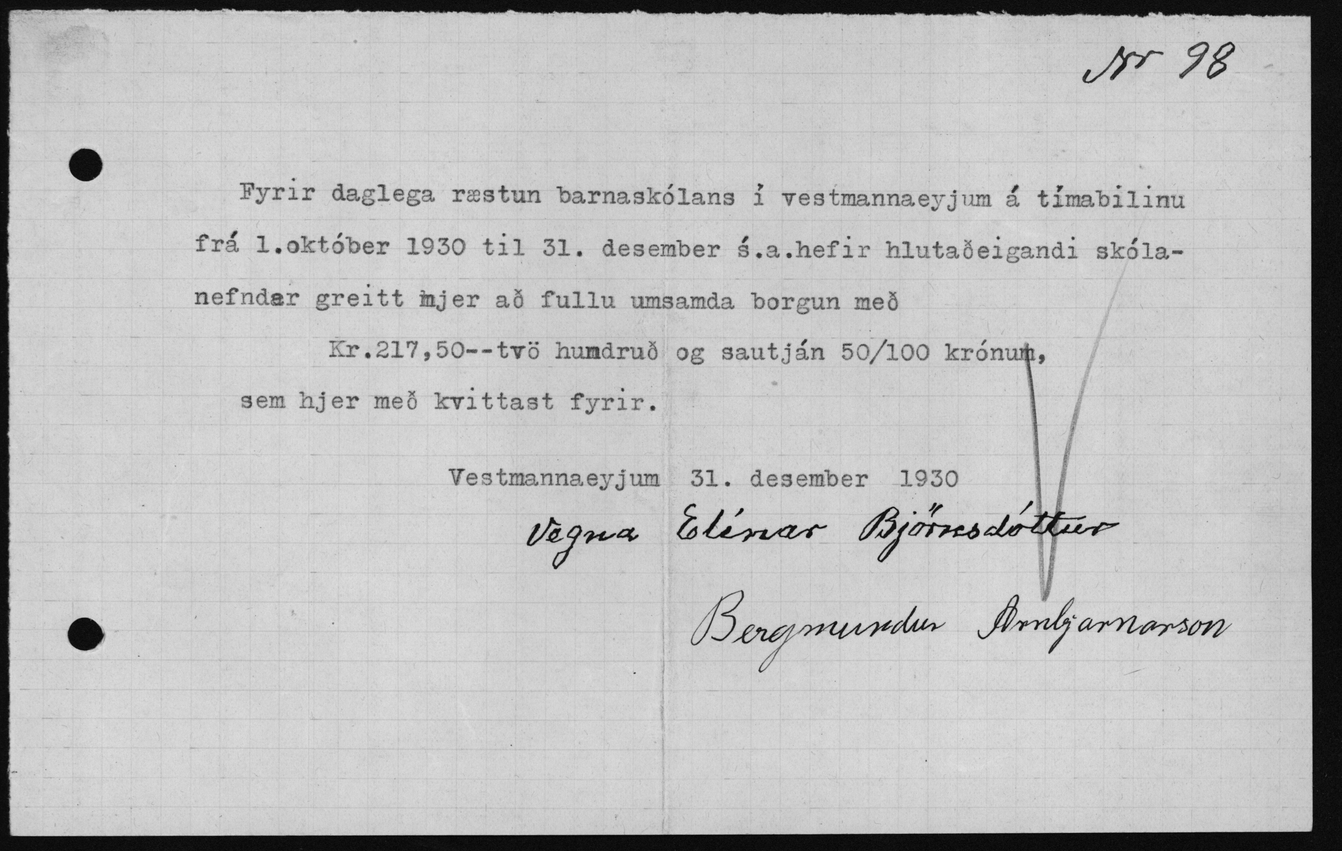 Nr 98
Fyrir daglega ræstun barnaskólans í vestmannaeyjum á tímabilinu
frá 1.október 1930 til 31. desember ś.a.hefir hlutaðeigandi skóla-
nefndar greitt mjer að fullu umsamda borgun með
Kr.217,50--tvö hundruð og sautján 50/100 krónum,
sem hjer með kvittast fyrir.
Vestmannaeyjum 31. desember 1930
Vegna Elínar Björnsdóttur
Bergmundur Arnbjarnarson